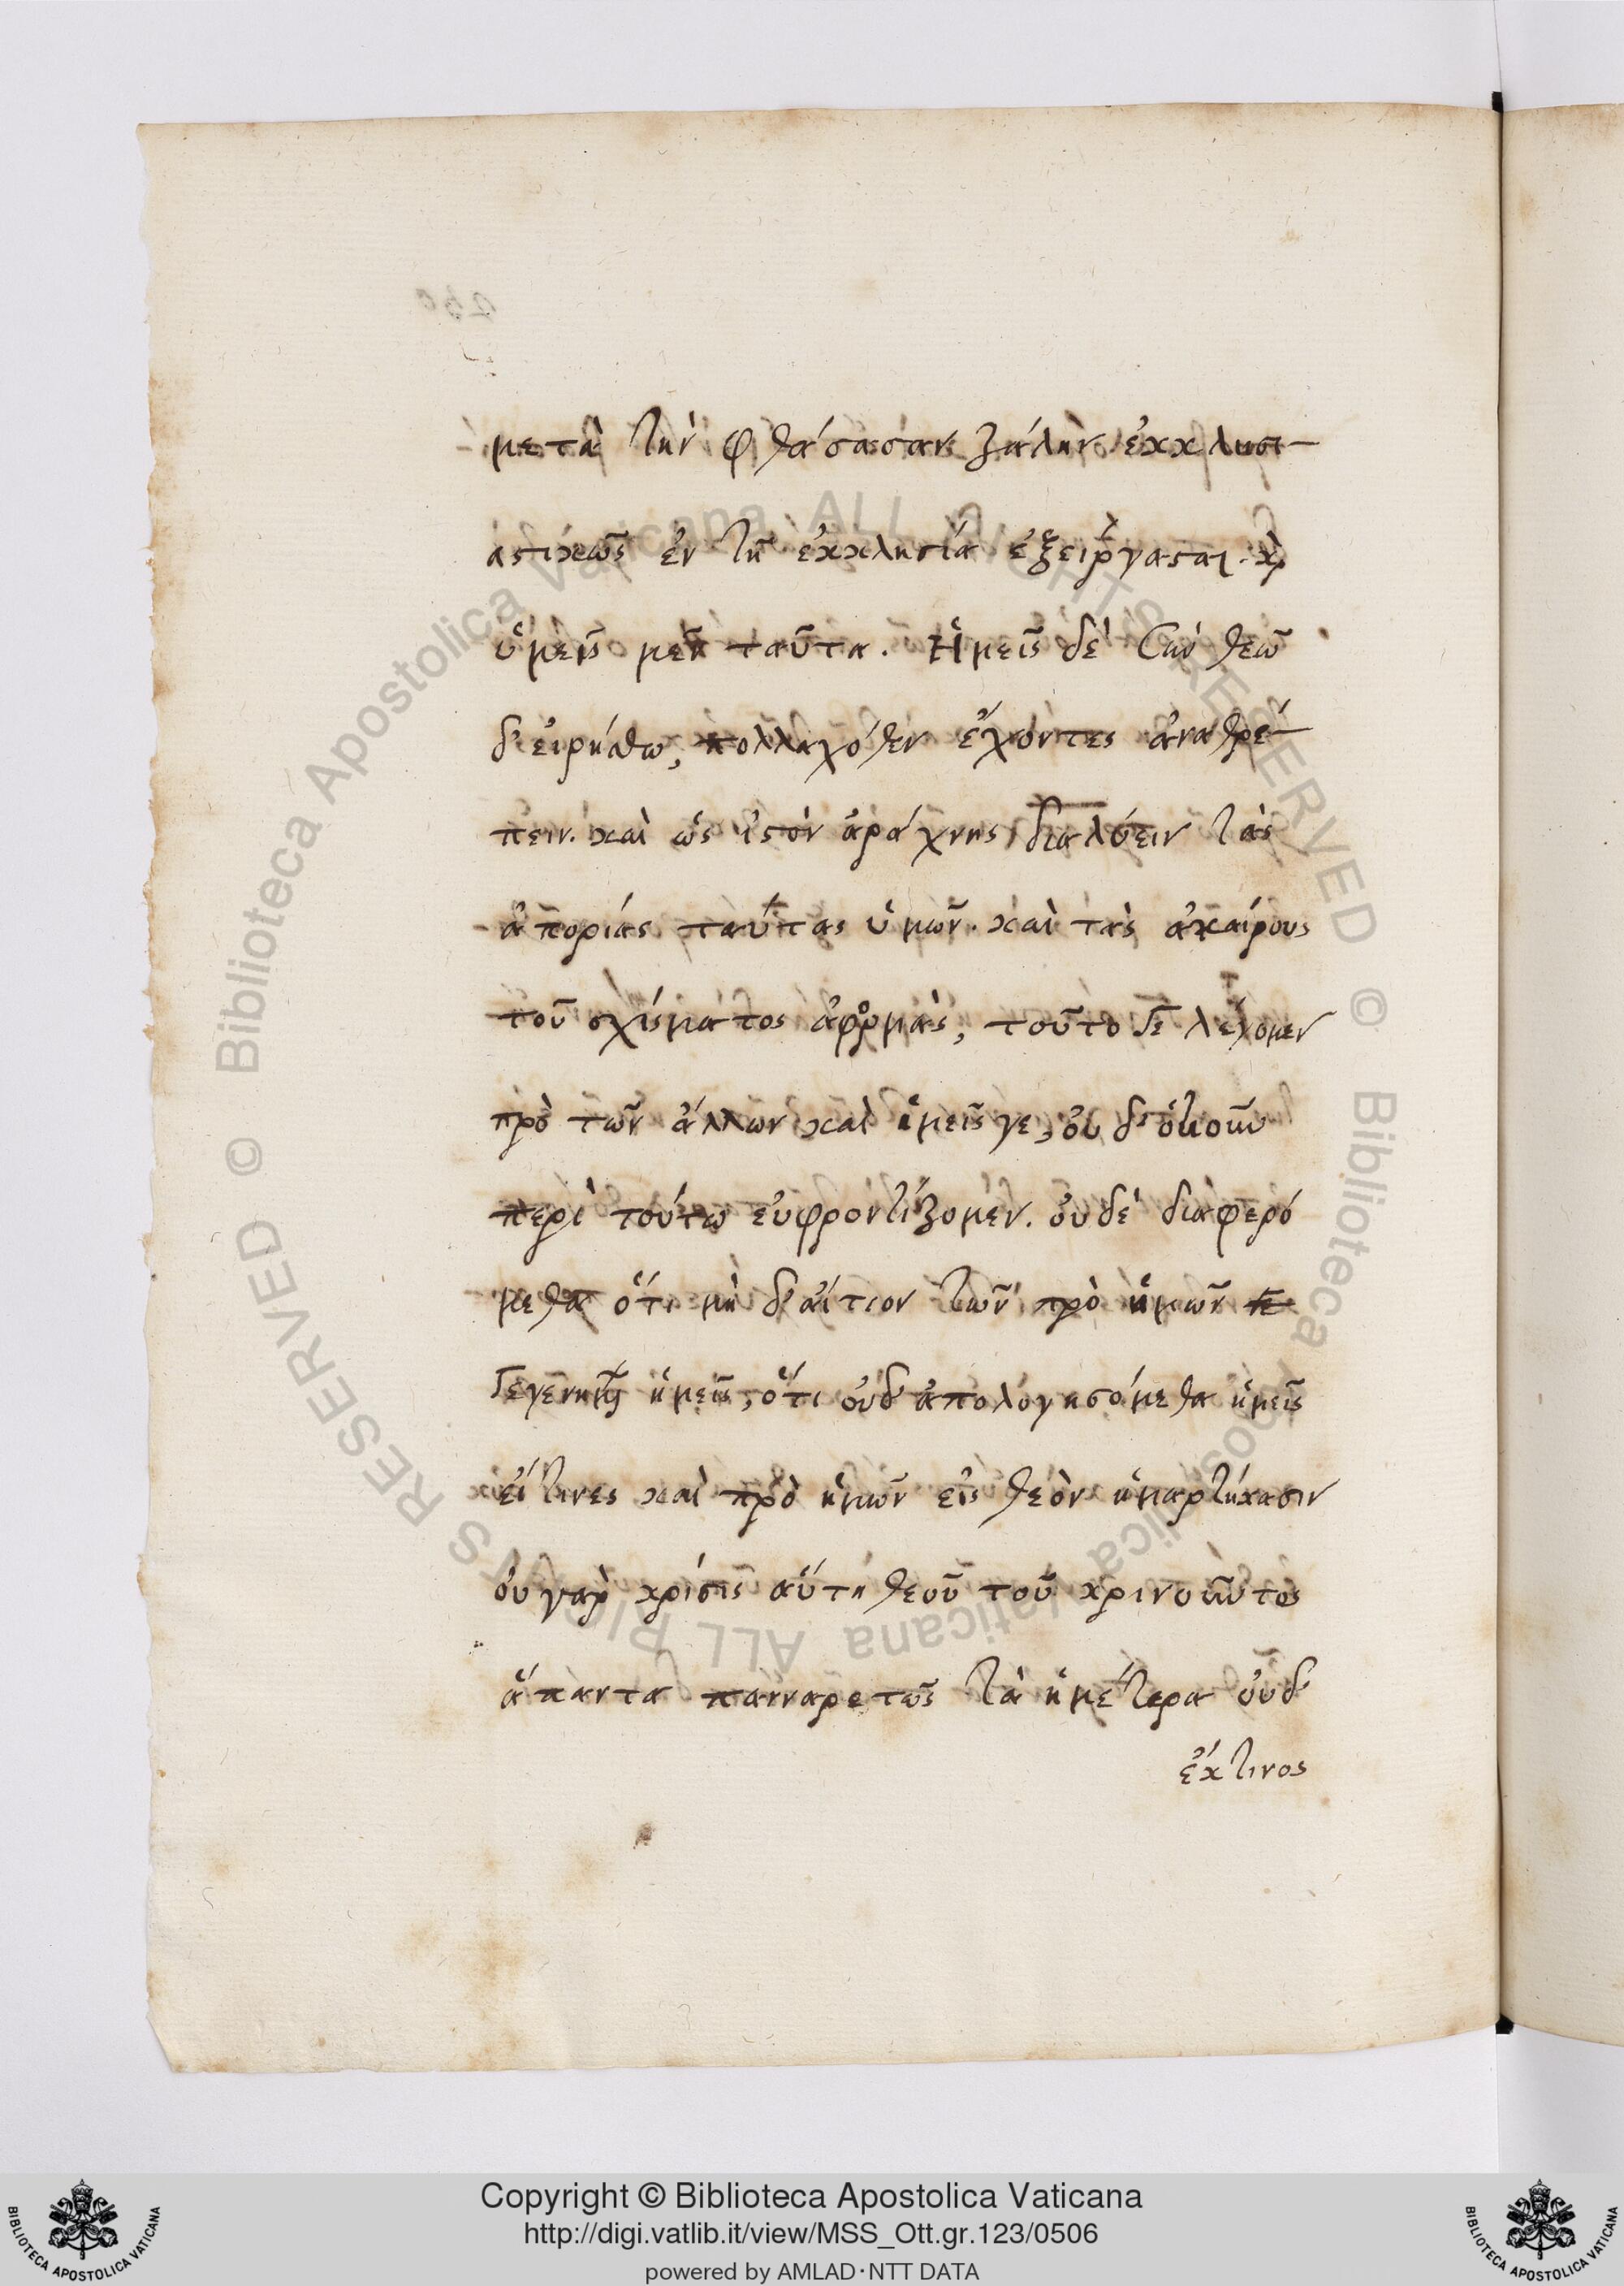 μετὰ τὴν φθάσασαν ζάλην ἐκκλησι-
αστικῶς ἐν τῇ ἐκκλησία ἐξειργασται. κ
ὑμεῖς μεν ταῦτα. Ἡμεῖς δὲ σὺν θεῶ
δ' εἰρήσθω, πολλαχόθεν ἔχοντες ἀνατρέ-
πειν. καὶ ὡς ἱστὸν ἀράχνης διαλύειν τὰς
ἀπορίας ταύτας ὑμῶν. καὶ τὰς ἀκαίρους
τοῦ σχίσματος ἀφορμὰς, τοῦτο δε λέγομεν
πρὸ τῶν ἄλλων καὶ ἡμεῖς γε, οὐ δ' ὁτιοῦν
περὶ τούτω εὐφροντίζομεν. οὐδὲ διαφερό
μεθα ὅτι μὴ δ' αἴτιον τῶν πρὸ ἡμῶν
γεγενημ ἡμεῖς, ὅτι οὐδ' ἀπολογησόμεθα ἡμεῖς
εἴ τινες καὶ πρὸ ἡμῶν εἰς θεὸν ἡμαρτήκασιν
οὐ γαρ κρίσις αὕτη θεοῦ τοῦ κρινοῦντος
ἅπαντα παναρετῶς τὰ ἡμέτερα οὐδ'
ἔκ τινος
© Biblioteca Apostolica Vaticana ALL RIGHTS RESERVED © Biblioteca Apostolica Vaticana ALL RIGHTS RESERVED
BIBLIOTECA APOSTOLICA VATICANA
Copyright © Biblioteca Apostolica Vaticana
http://digi.vatlib.it/view/MSS_Ott.gr.123/0506
powered by AMLAD·NTT DATA
BIBLIOTECA APOSTOLICA VATICANA